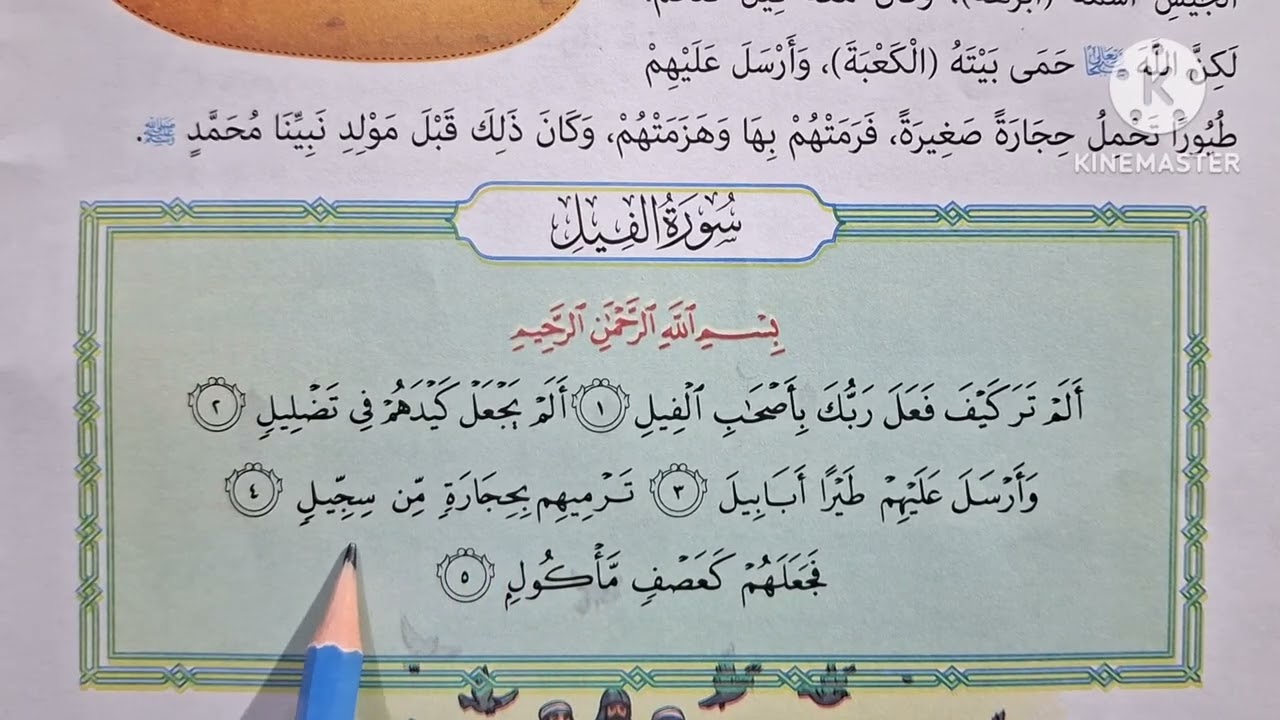 الْجَيْشِ اسْمُهُ (أَبْرَهَةُ)، وَكَانَ مَعَهُ فِيلٌ
لَكِنَّ اللَّهَ حَمَى بَيْتَهُ (الْكَعْبَةَ)، وَأَرْسَلَ عَلَيْهِمْ
طُيُورًا تَحْمِلُ حِجَارَةً صَغِيرَةً، فَرَمَتْهُمْ بِهَا وَهَزَمَتْهُمْ، وَكَانَ ذَلِكَ قَبْلَ مَوْلِدِ نَبِيِّنَا مُحَمَّدٍ ﷺ.
K
KINEMASTER
سُورَةُ الْفِيلِ
بِسْمِ ٱللَّهِ ٱلرَّحْمَٰنِ ٱلرَّحِيمِ
أَلَمْ تَرَ كَيْفَ فَعَلَ رَبُّكَ بِأَصْحَٰبِ ٱلْفِيلِ ١ أَلَمْ يَجْعَلْ كَيْدَهُمْ فِى تَضْلِيلٍ ٢
وَأَرْسَلَ عَلَيْهِمْ طَيْرًا أَبَابِيلَ ٣ تَرْمِيهِم بِحِجَارَةٍ مِّن سِجِّيلٍ ٤
فَجَعَلَهُمْ كَعَصْفٍ مَّأْكُولٍ ٥